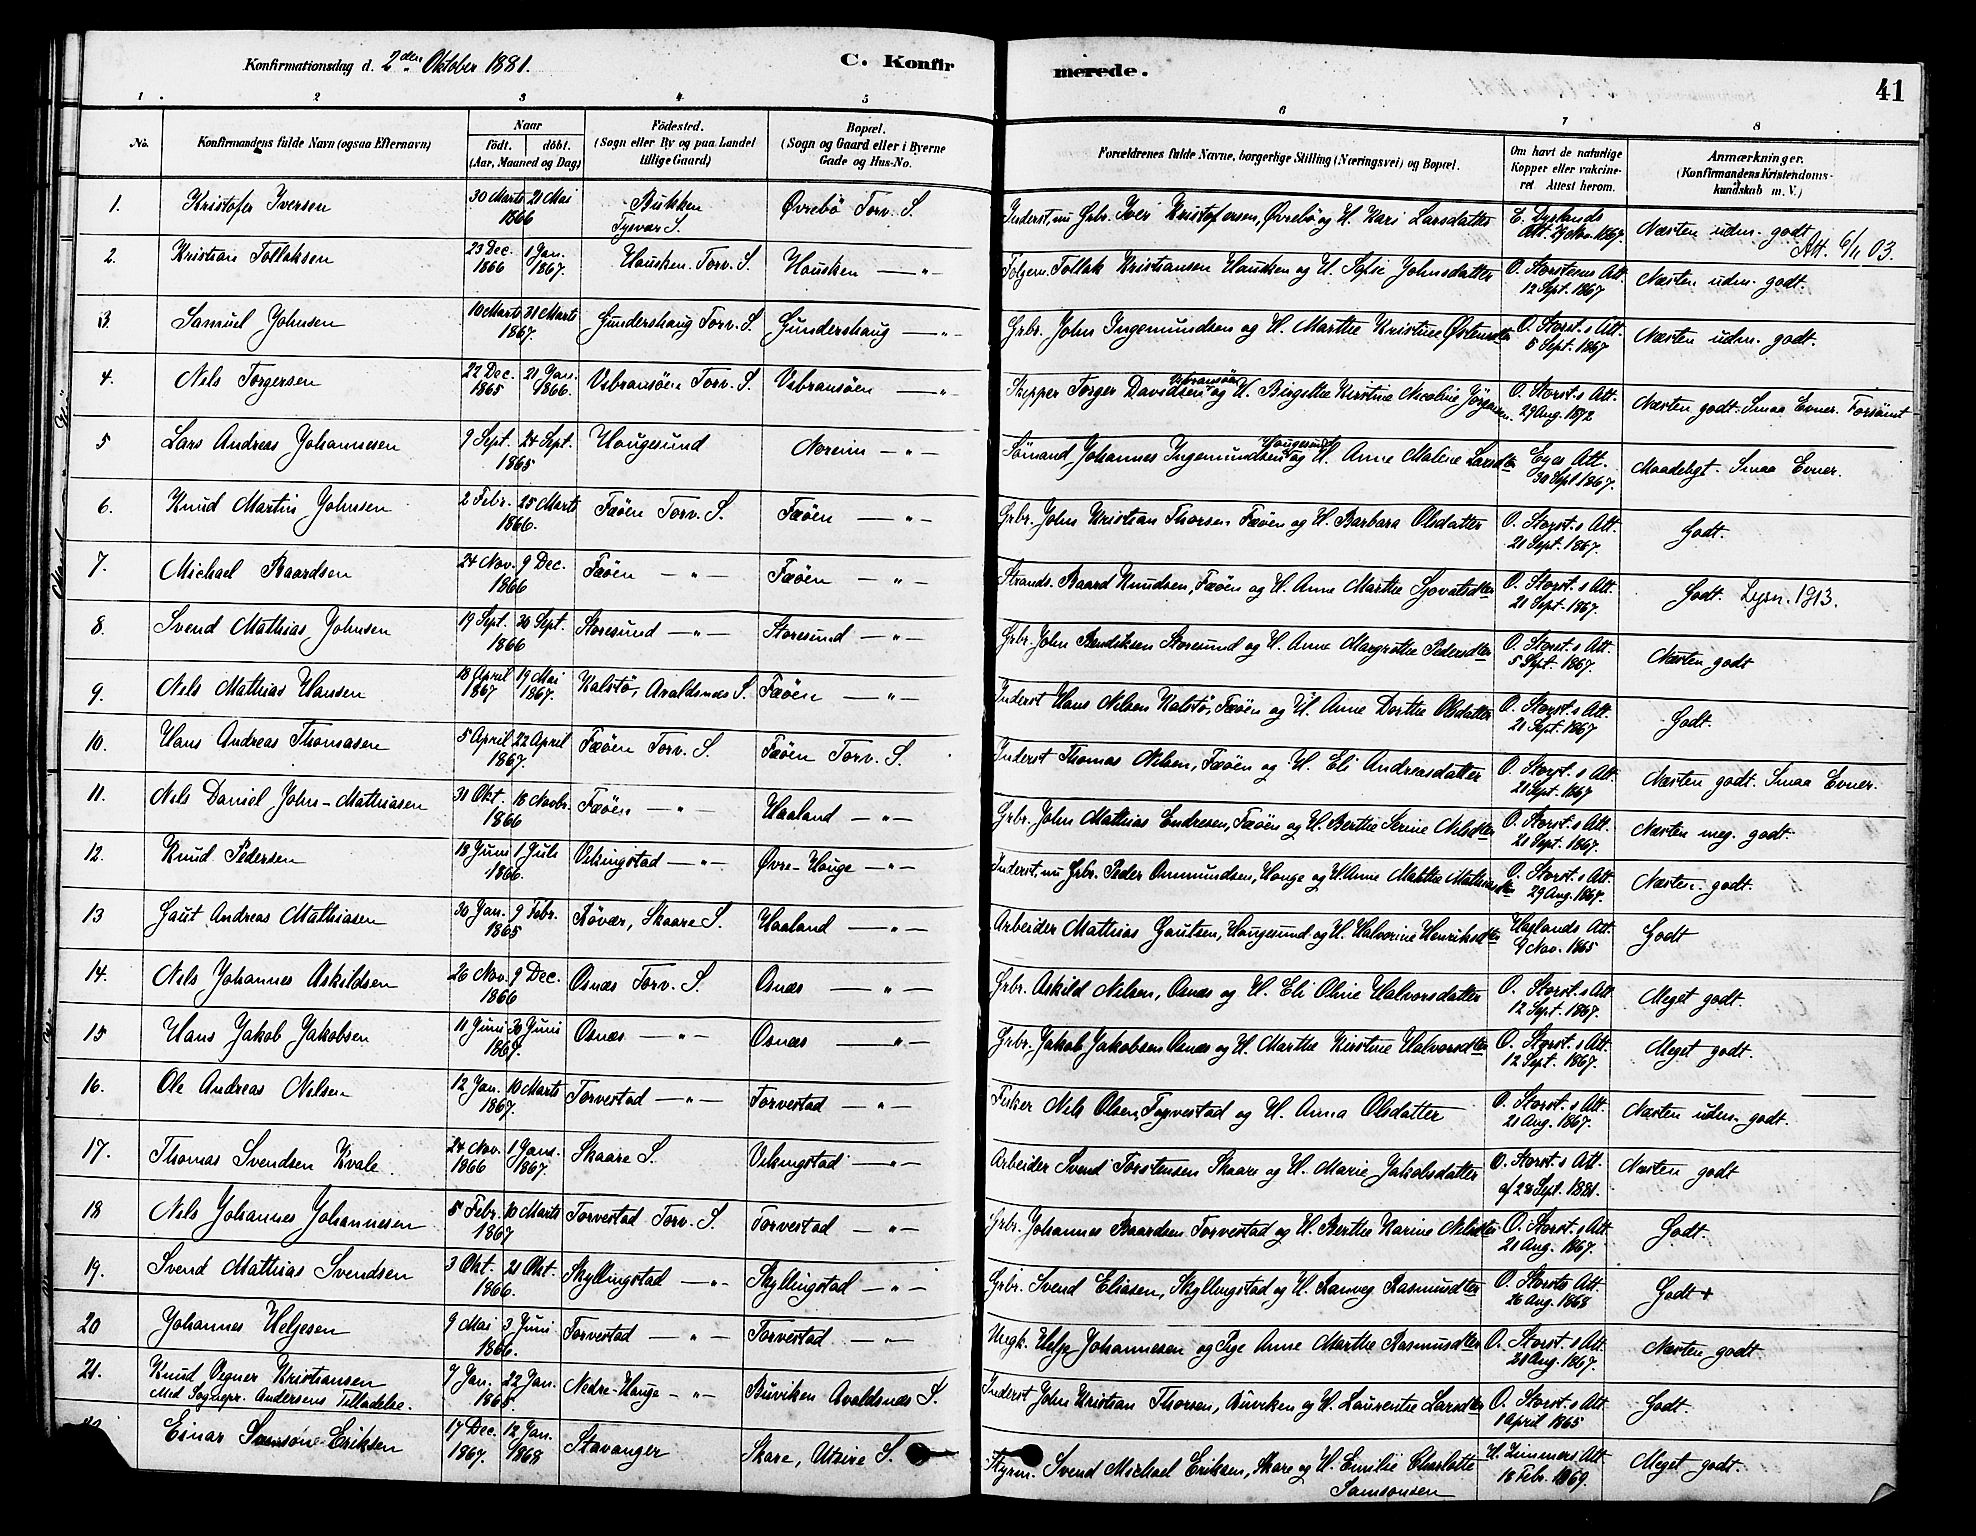 Konfirmationsdag d. 2den Oktober 1881.
C. Konfirmerede.
41
1 2 3 4 5 6 7 8
No.
Konfirmandens fulde Navn (ogsaa Efternavn)
Naar
født. døbt.
(Aar, Maaned og Dag)
Fødested.
(Sogn eller By og paa Landet
tillige Gaard)
Bopæl.
(Sogn og Gaard eller i Byerne
Gade og Hus-No.
Forældrenes fulde Navne, borgerlige Stilling (Næringsvei) og Bopæl.
Om havt de naturlige
Kopper eller vakcine-
ret Attest herom.
Anmærkninger.
(Konfirmandens Kristendoms-
kundskab m. V.)
1. Kristofer Iversen 30 Marts 21 Mai 1866 Bukken Tysvær S. Øvrebö Torv. S. Inderst, nu Grbr. Iver Kristofersen, Øvrebö og H. Kari Larsdatter Att. 29 Nov. 1867. Næsten udm. godt Att. 6/11 03.
2. Kristian Tollaksen 23 Dec. 1866 1 Jan. 1867. Hausken Torv. S. Hausken — " Tollak Kristiansen Hausken og H. Sofie Johnsdatter O. Storstens Att. 12 Sept. 1867 Næsten udm. godt.
3. Samuel Johnsen 10 Marts 31 Marts 1867. Gundershaug Torv. S. Gundershaug — " — Grbr. John Ingemundsen og H. Marthe Kristine Østensdtr O. Storst.s Att. 5 Sept. 1867 Næsten udm. godt.
4. Nels Torgersen 22 Dec. 1865 21 Jan. 1866. Vibransöen Torv. S. Vibransöen — " — Skipper Torger Davidsen Vibransöen og H. Birgitte Kirstine Nicoline Jörgensen O. Storst.s Att. 29 Aug. 1872 Næsten godt. Smaa Evner. Forsömt
5 Lars Andreas Johannesen 9 Sept. 24 Sept. 1865 Haugesund Noreim — " — Sömand Johannes Ingemundsen Haugesund og H. Anne Malene Larsdtr Eges Att. 30 Sept 1867. Maadeligt. Smaa Evner.
6. Knud Martin Johnsen 2 Febr. 25 Marts 1866. Fæöen Torv. S. Fæöen — " — Grbr. John Kristian Thorsen Fæöen og H. Barbara Olsdatter O. Storst.s Att. 21 Sept. 1867. Godt.
7. Michael Baardsen 24 Nov. 9 Dec. 1866 Fæöen — " — Fæöen — " — Strands. Baard Knudsen, Fæöen og H. Anne Marthe Sjovatsdtr O. Storst.s Att. 21 Sept. 1867. Godt. Lysn. 1913.
8. Svend Mathias Johnsen 19 Sept. 20 Sept. 1866 Storesund — " — Storesund — " — Grbr. John Bendiksen Storesund og H. Anne Margrethe Pedersdtr O. Storst.s Att. 5 Sept. 1867. Næsten godt
9. Nels Mathias Hansen 18 April 1867 19 Mai 1867. Kalstö, Avaldsnes S. Fæöen — " — Inderst Hans Nelsen Kalstö, Fæöen og H. Anne Dorthe Olsdatter O. Storst.s Att. 21 Sept. 1867 Godt.
10. Hans Andreas Thomasen 5 April 22 April 1867. Fæöen Torv. S. Fæöen Torv. S. Inderst Thomas Nelsen, Fæöen og H. Eli Andreasdatter O. Storst.s Att. 21 Sept. 1867 Næsten godt. Smaa Evner.
11. Nels Daniel John-Mathiasen 31 Okt. 18 Novbr. 1866 Fæöen — " — Haaland — " — Grbr. John Mathias Endresen, Fæöen og H. Berthe Serine Nelsdtr O. Storst.s Att. 21 Sept. 1867. Næsten meg. godt.
12. Knud Pedersen 18 Juni 1 Juli 1866. Vikingstad — " — Øvre-Hauge — " — Inderst, nu Grbr. Peder Ommundsen, Hauge og H. Anne Marthe Mathiasdtr O. Storst.s Att. 29 Aug. 1867. Næsten godt.
13 Gaut Andreas Mathiasen 30 Jan. 9 Febr. 1865 Rövær, Skaare S. Haaland — " — Arbeider Mathias Gautsen, Haugesund og H. Halvorine Henriksdtr Haglands Att. 9 Nov. 1865 Godt
14. Nels Johannes Askildsen 26 Nov. 9 Dec. 1866 Osnæs Torv. S. Osnæs — " — Grbr. Askild Nelsen, Osnæs og H. Eli Oline Halvorsdatter O. Storst.s Att. 12 Sept. 1867. Meget godt.
15 Hans Jakob Jakobsen 11 Juni 30 Juni 1867. Osnæs — " — Osnæs — " — Grbr. Jakob Jakobsen Osnæs og H. Marthe Kirstine Halvorsdtr O. Storst.s Att. 12 Sept. 1867. Meget godt.
16. Ole Andreas Nelsen 12 Jan. 10 Marts 1867. Torvestad — " — Torvestad — " — Fisker Nels Olsen, Torvestad og H. Anna Olsdatter O. Storst.s Att. 21 Aug. 1867. Næsten udm. godt.
17. Thomas Svendsen Kvale. 24 Nov. 1866 1 Jan. 1867. Skaare S. Vikingstad — " — Arbeider Svend Torstensen Skaare og H. Marie Jakobsdatter O. Storst.s Att. af 28 Sept. 1881. Næsten godt
18 Nels Johannes Johannesen 5 Febr. 10 Marts 1867 Torvestad Torv. S. Torvestad — " — Grbr. Johannes Baardsen Torvestad og H. Berthe Karine Nelsdtr O. Storst.s Att. 21 Aug. 1867. Godt.
19. Svend Mathias Svendsen 3 Okt. 21 Okt. 1866. Skyllingstad — " — Skyllingstad — " — Grbr. Svend Eliasen, Skyllingstad og H. Ranveg Rasmusdtr O. Storsts Att. 26 Aug. 1868 Godt +
20 Johannes Heljesen 9 Mai 3 Juni 1866. Torvestad — " — Torvestad — " — Ungk. Helje Johannesen og Pige Anne Marthe Rasmusdtr O. Storst.s Att. 21 Aug. 1867. Næsten godt.
21. Knud Kristiansen 7 Jan. 22 Jan. 1865. Nedre-Hauge — " — Buviken Avaldsnæs S. Inderst John Kristian Thorsen, Buviken og H. Laurentse Larsdtr O. Storst.s Att. 1 April 1865 Godt.
Med Sognepr. Andersens Tilladelse.
Einar Samsone Eriksen 17 Dec. 1867. 12 Jan. 1868 Stavanger Skare, Utsire S. Styrm. Svend Michael Eriksen, Skare og H. Emilie Charlotte Samsonsen Att. 18 Febr. 1869. Meget godt.